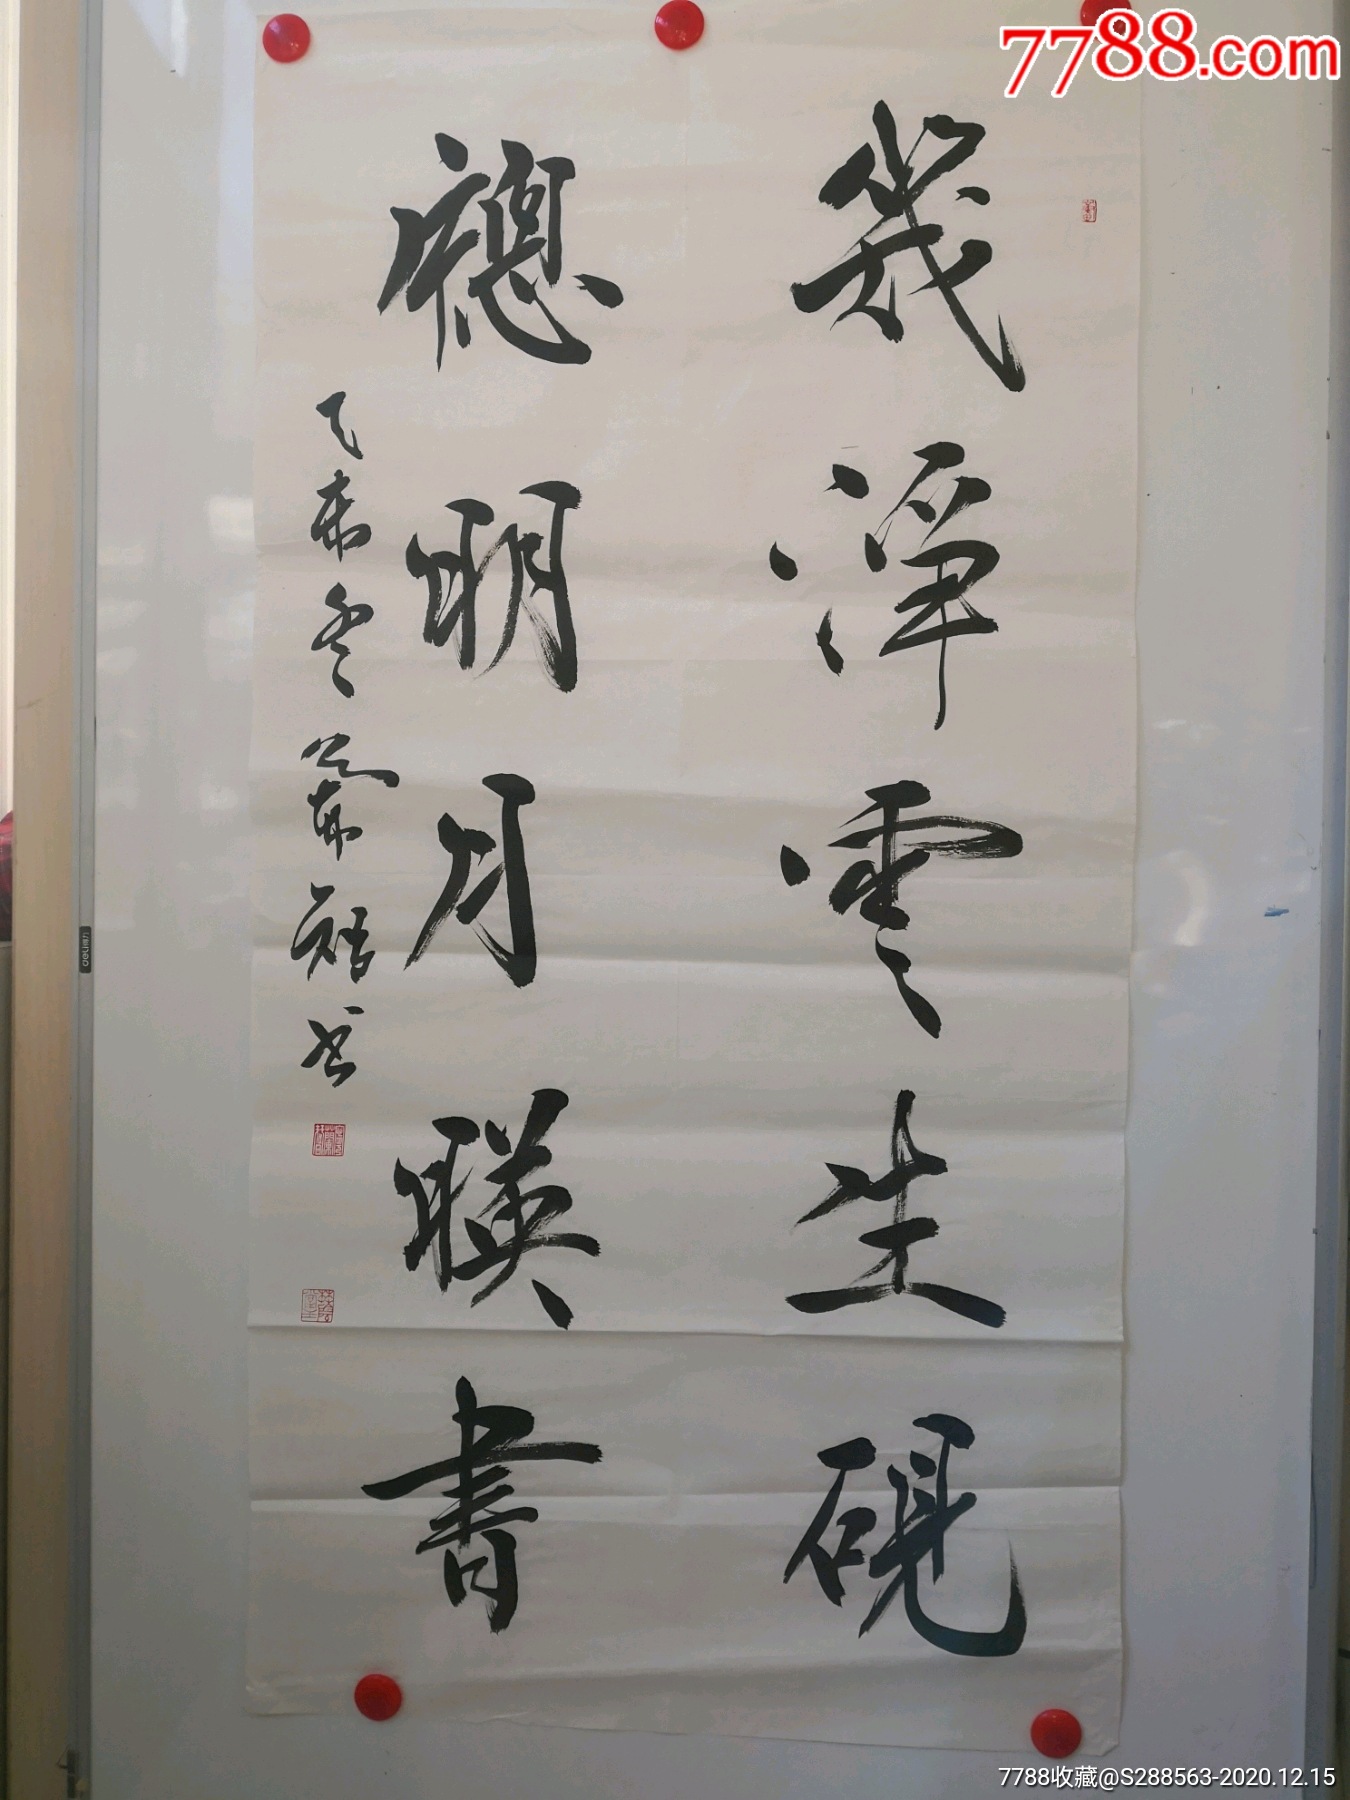 7788.com
幾淨雲生硯
牕明月暎書
乙未冬 書
deli得力
7788收藏@S288563-2020.12.15